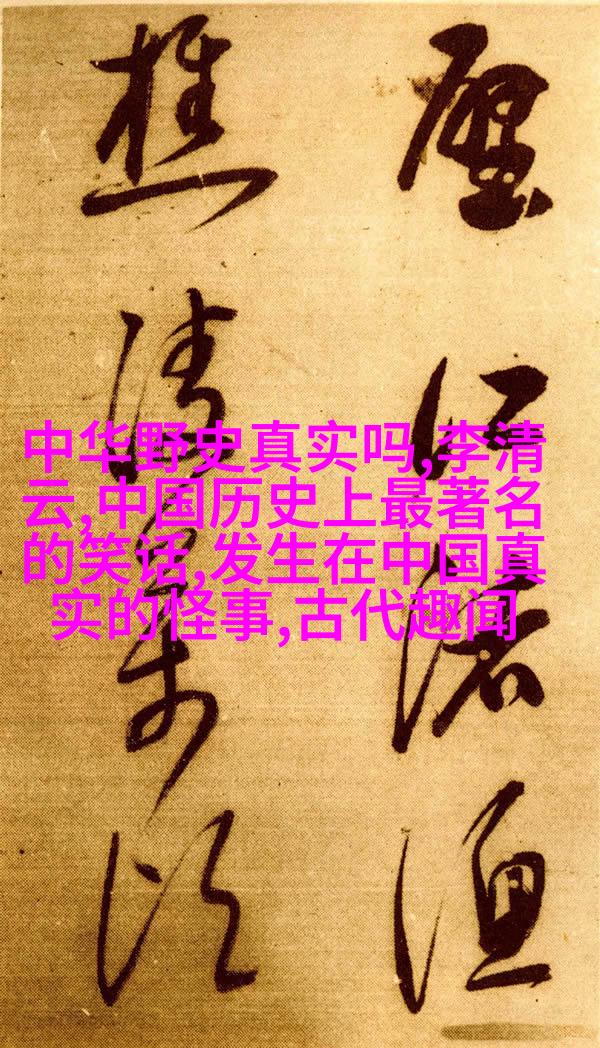 中华野史真实吗,李清
云,中国历史上最著名
的笑话,发生在中国真
实的怪事,古代趣闻
江渚
樵清